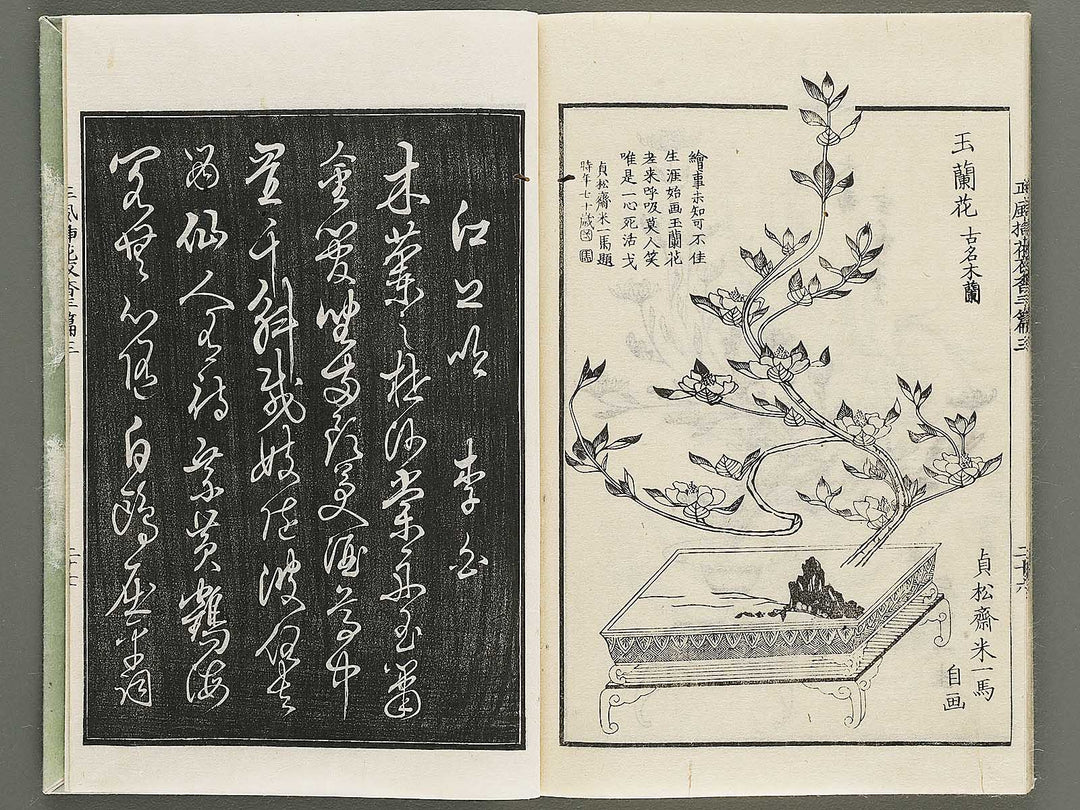 玉蘭花 古名木蘭
繪事未知可不佳
生涯始画玉蘭花
老来呼吸莫人笑
唯是一心死活戈
貞松齋米一馬題
時年七十歳
貞松齋米一馬
自画
二十六
江上吟 李白
木蘭之枻沙棠舟玉簫
金管坐兩頭美酒尊中
置千斛載妓隨波任去
留仙人有待乘黃鶴海
客無心隨白鷗屈平詞
二十七